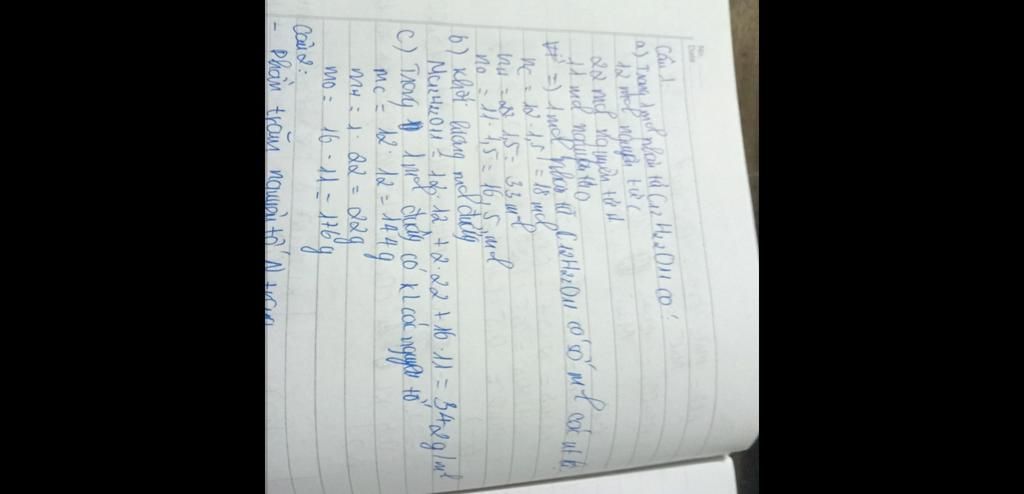 No.
Date
Câu 1:
a) Trong 1 mol phân tử C12H22O11 có:
12 mol nguyên tử C
22 mol nguyên tử H
11 mol nguyên tử O
=) 1 mol phân tử C12H22O11 có số mol các nt là:
nC = 12 . 1,5 = 18 mol
nH = 22 . 1,5 = 33 mol
nO = 11 . 1,5 = 16,5 mol
b) khối lượng mol đường
MC12H22O11 = 12 . 12 + 2 . 22 + 16 . 11 = 342 g/mol
c) Trong 1 mol đường có kl các nguyên tố
mC = 12 . 12 = 144g
mH = 1 . 22 = 22g
mO = 16 . 11 = 176g
Câu 2:
- phần trăm nguyên tố N trong